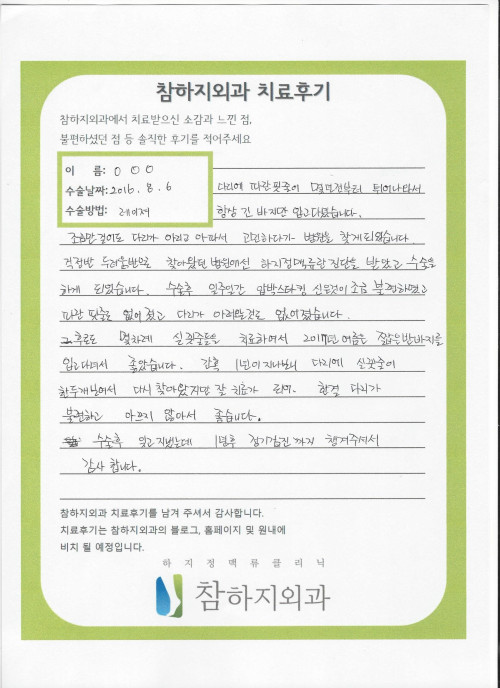 참하지외과 치료후기
참하지외과에서 치료받으신 소감과 느낀 점,
불편하셨던 점 등 솔직한 후기를 적어주세요
이 름: 0 0 0
수술날짜: 2016. 8. 6
수술방법: 레이저
다리에 파란 핏줄이 몇년전부터 튀어나와서
항상 긴 바지만 입고다녔습니다.
조금만 걸어도 다리가 아리고 아파서 고민하다가 병원을 찾게되었습니다.
걱정반 두려움반으로 찾아왔던 병원에선 하지정맥류란 진단을 받았고 수술을
하게 되었습니다. 수술후 일주일간 압박스타킹 신는것이 조금 불편하였고
파란 핏줄도 없어졌고 다리가 아려왔던것도 없어졌습니다.
그후로도 몇차례 실핏줄들을 치료하여서 2017년 여름은 짧은반바지를
입고다녀서 좋았습니다. 간혹 1년이 지나보니 다리에 실핏줄이
한두개남아서 다시 찾아왔지만 잘 치료가 되어. 한결 다리가
불편하고 아프지 않아서 좋습니다.
수술후 잊고지냈는데 1년후 정기검진까지 챙겨주셔서
감사 합니다.
참하지외과 치료후기를 남겨 주셔서 감사합니다.
치료후기는 참하지외과의 블로그, 홈페이지 및 원내에
비치 될 예정입니다.
하지정맥류클리닉
참하지외과